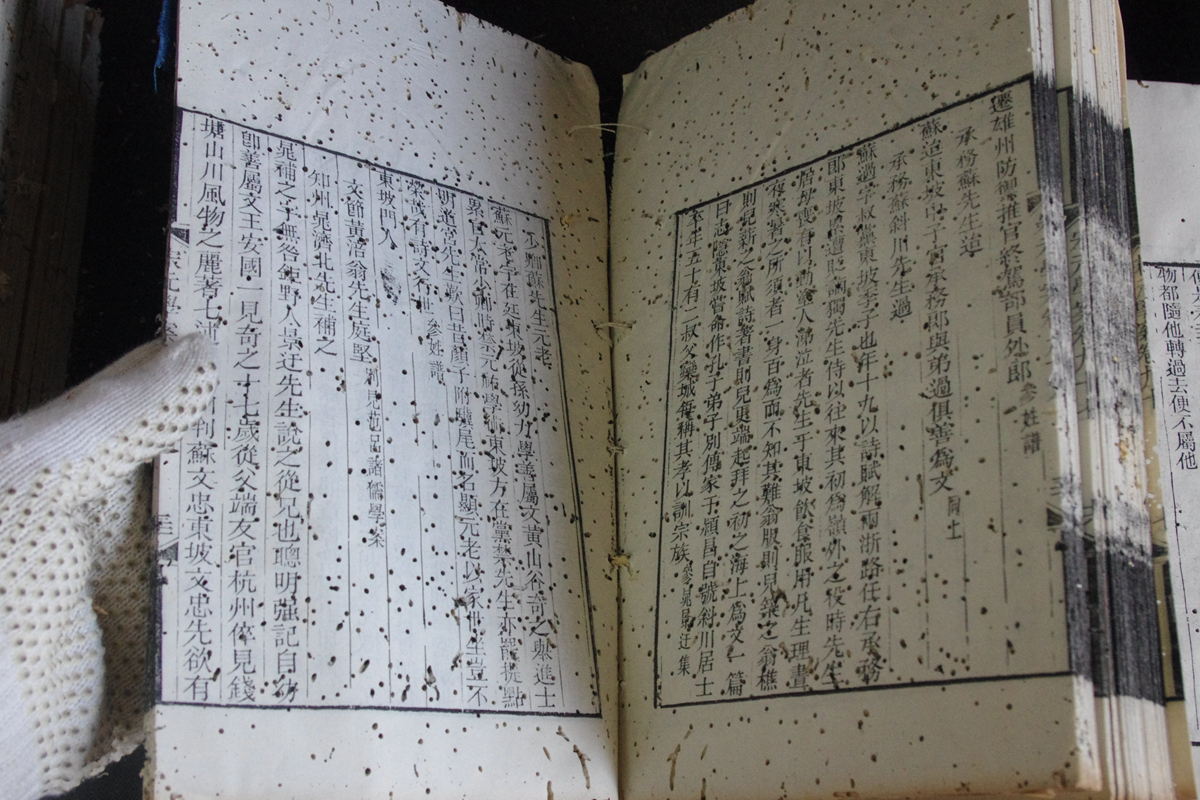 物都隨他轉過去便不屬他
遷雄州防禦推官終駕部員外郎 參姓譜
承務蘇先生迨
蘇迨東坡中子官承務郎與弟過俱善為文 同上
承務蘇斜川先生過
蘇過字叔黨東坡季子也年十九以詩賦解兩浙路任右承務
郎東坡屢遭貶謫獨先生侍以往來其初為嶺外之役時先生
居母喪舂臼人涕泣者先生乎東坡飲食服用凡生理晝
夜寒暑之所須者一身百為而不知其難翁服則兒築之翁樵
則兒薪之翁賦詩著書則兒更端起拜之初之海上為文一篇
曰志隱東坡嘗命作孔子弟子別傳家于潁昌自號斜川居士
卒年五十有二叔父欒城每稱其孝以訓宗族 參晁景迂集
少卿蘇先生元老
蘇元老字在廷東坡從孫幼力學善屬文黃山谷奇之舉進士
累官太常少卿時禁元祐學術東坡方在黨禁先生亦罷提點
明道宮先生歎曰昔顏子附驥尾而名顯元老以家世坐豈不
榮哉有詩文行世 參姓譜
東坡門人
文節黃涪翁先生庭堅 別見范呂諸儒學案
知州晁濟北先生補之
晁補之字無咎鉅野人景迂先生說之從兄也聰明強記自幼
即善屬文王安國一見奇之十七歲從父端友官杭州倅見錢
塘山川風物之麗著七述州判蘇文忠東坡文忠先欲有